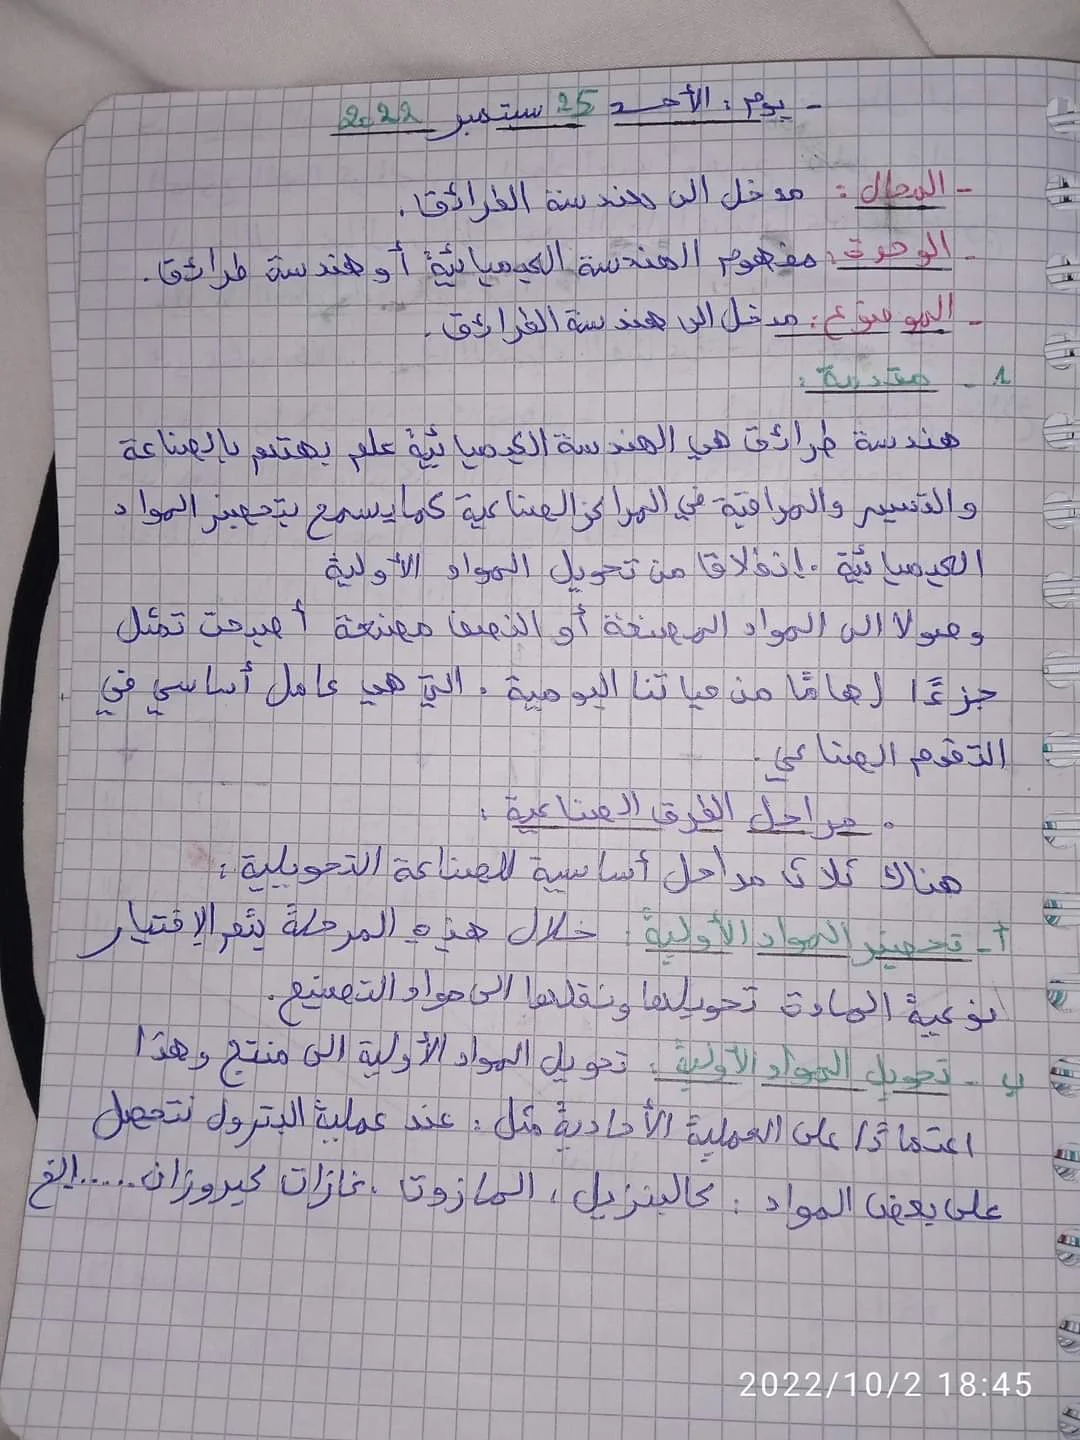 - يوم : الأحد 25 سبتمبر 2022
- المجال : مدخل الى هندسة الطرائق.
- الوحدة : مفهوم الهندسة الكيميائية أو هندسة طرائق.
- الموضوع : مدخل الى هندسة الطرائق.
1 - مقدمة :
هندسة طرائق هي الهندسة الكيميائية علم يهتم بالصناعة
والتسيير والمراقبة في المراكز الصناعية كما يسمح بتجهيز المواد
الكيميائية . إنطلاقا من تحويل المواد الأولية
وصولا الى المواد المصنعة أو النصف مصنعة أصبحت تمثل
جزءًا هامًا من حياتنا اليومية . التي هي عامل أساسي في
التقدم الصناعي.
. مراحل الطرق الصناعية :
هناك ثلاث مراحل أساسية للصناعة التحويلية :
أ- تحضير المواد الأولية : خلال هذه المرحلة يتم الإختيار
نوعية المادة تحويلها ونقلها الى مواد التصنيع.
ب - تحويل المواد الأولية : تحويل المواد الأولية الى منتج وهذا
اعتمادًا على العملية الأحادية مثل : عند عملية البترول نتحصل
على بعض المواد : كالبنزيل ، المازوت ، غازات كيروزان ..... إلخ
2022/10/2 18:45